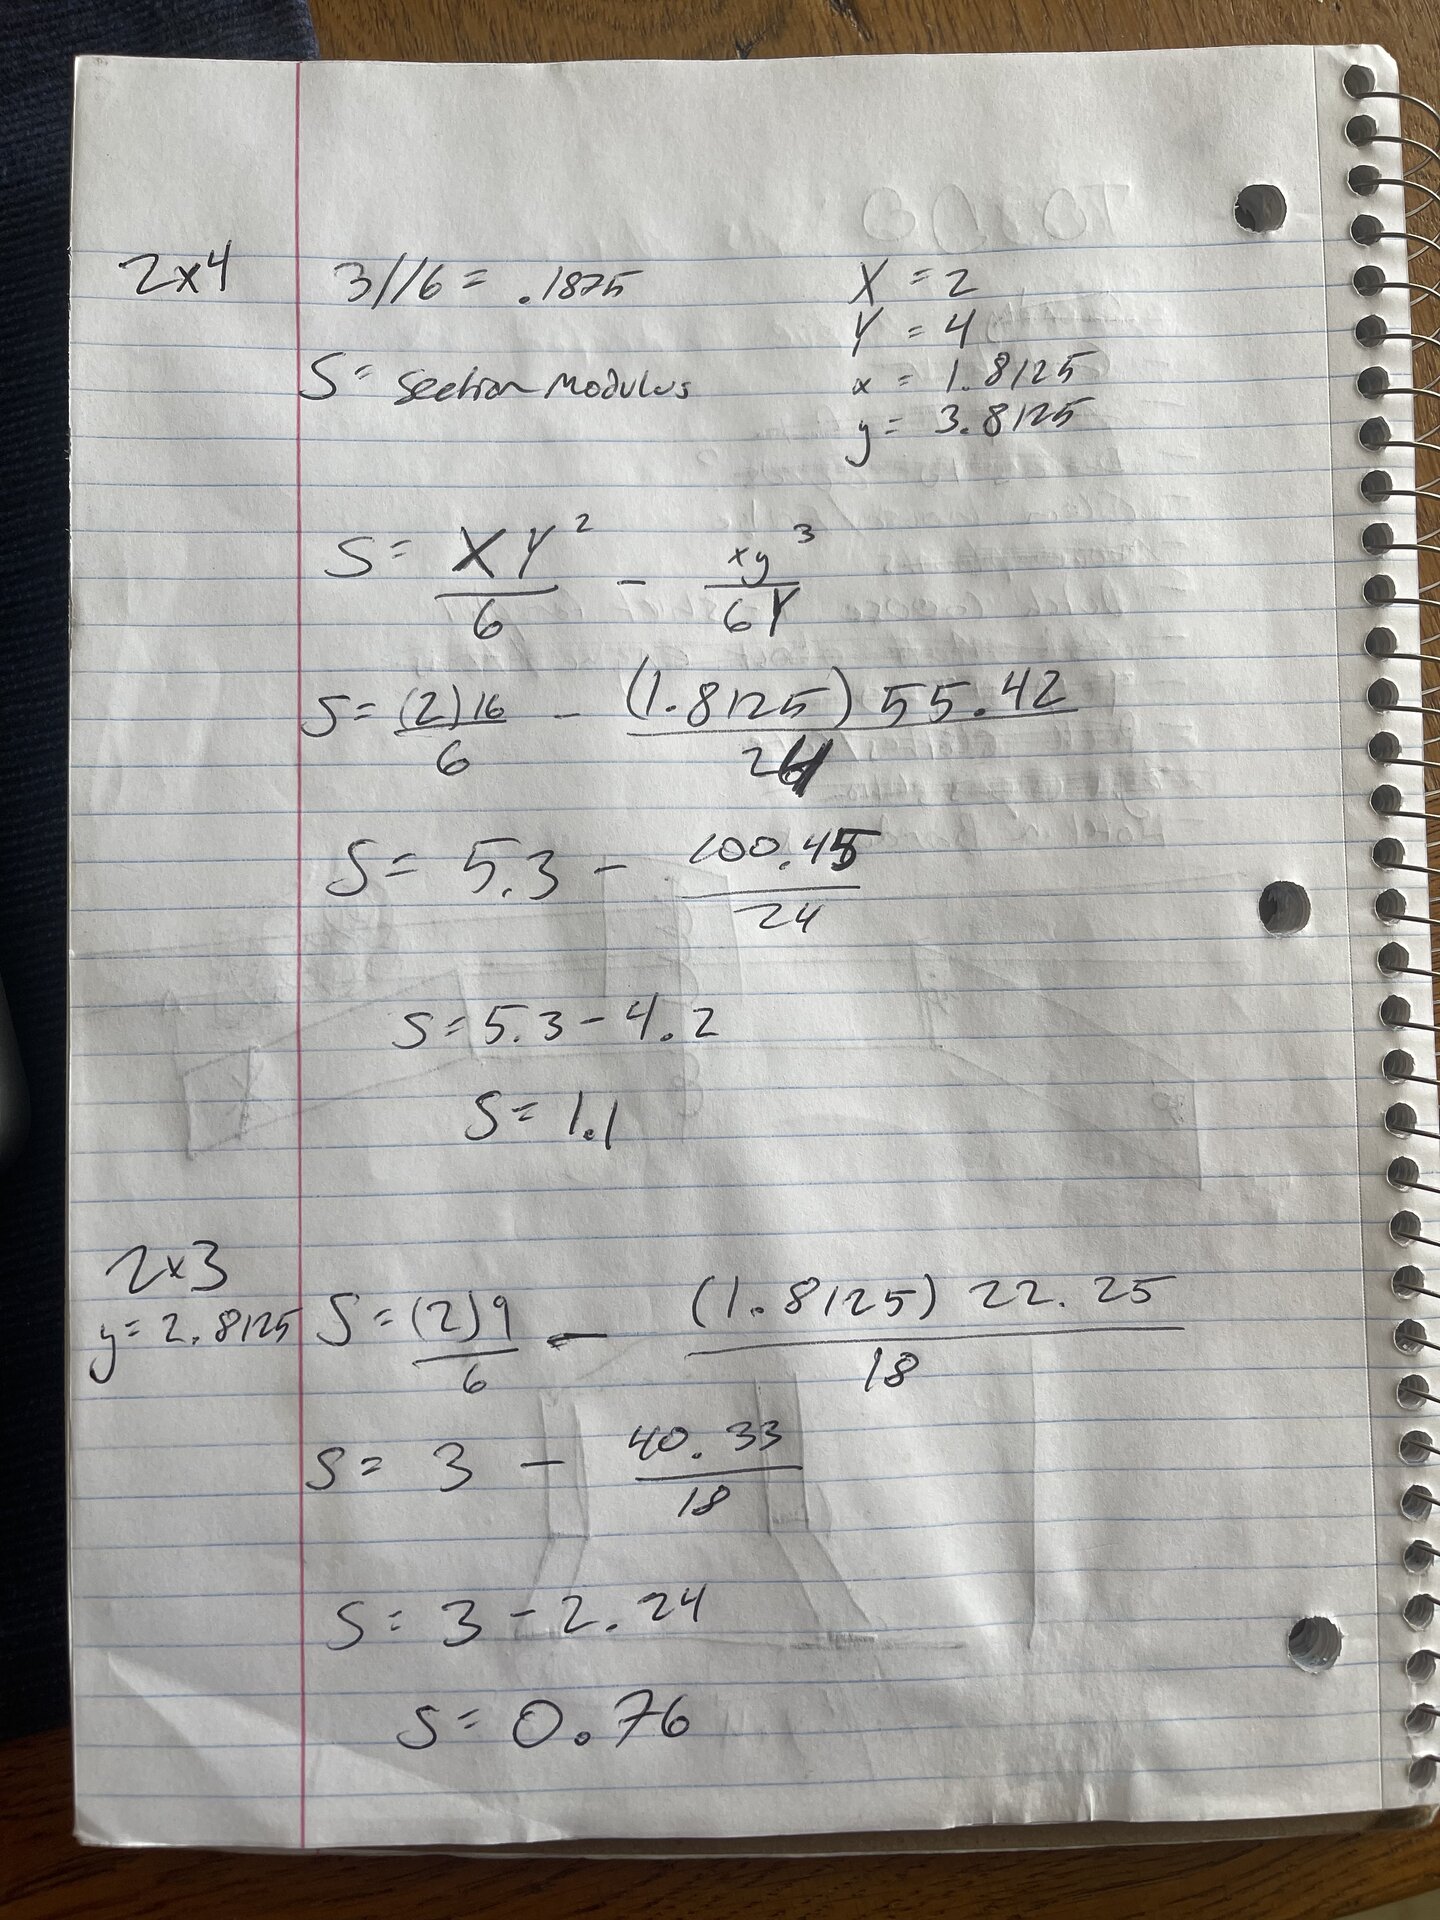 2x4 3//6 = .1875 X = 2
Y = 4
S = Section Modulus x = 1.8125
y = 3.8125
S = XY²/6 - xy³/6Y
S = (2)16/6 - (1.8125) 55.42/24
S = 5.3 - 100.45/24
S = 5.3 - 4.2
S = 1.1
2x3
y = 2.8125 S = (2)9/6 - (1.8125) 22.25/18
S = 3 - 40.33/18
S = 3 - 2.24
S = 0.76